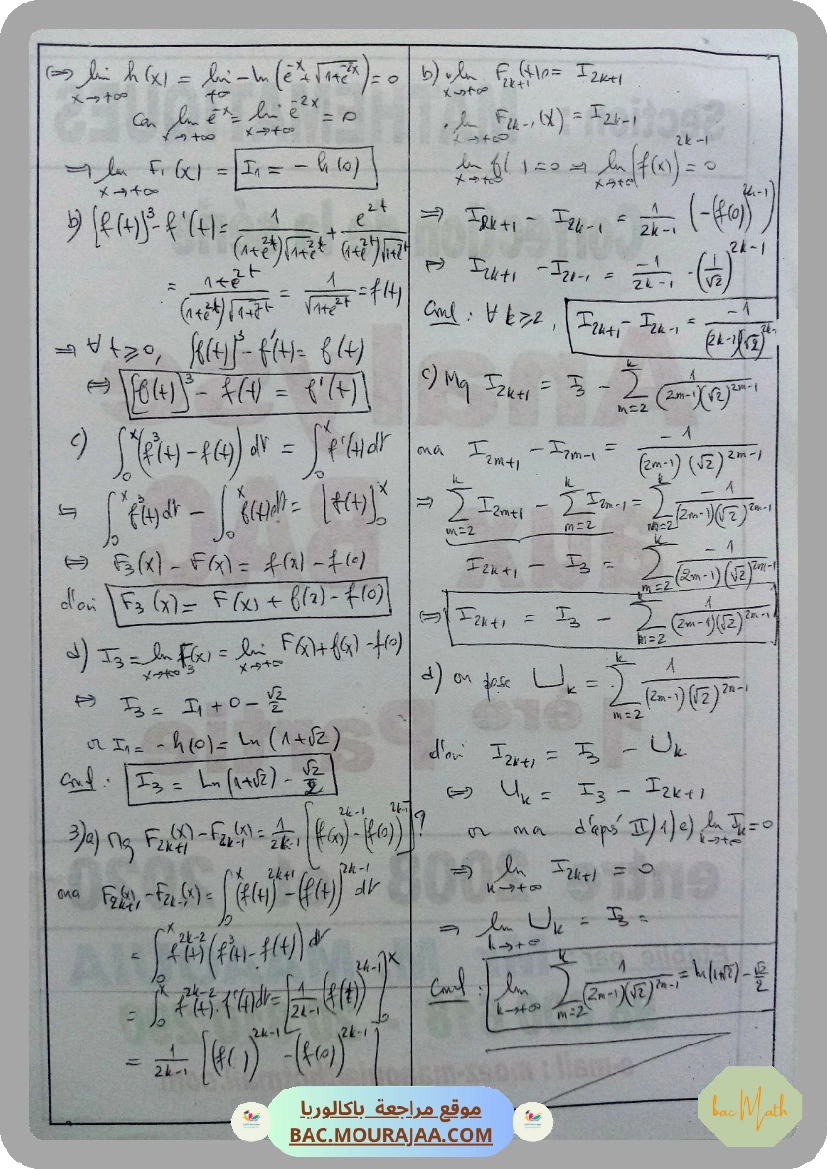 (=> lim h(x) = lim -ln(e^-x + √(1+e^-2x)) = 0
x→+∞ +∞
Car lim e^-x = lim e^-2x = 0
x→+∞ x→+∞
=> lim F₁(x) = I₁ = -h(0)
x→+∞
b) [f(t)]³ - f'(t) = 1/((1+e^2t)√(1+e^2t)) + e^2t/((1+e^2t)√(1+e^2t))
= (1+e^2t)/((1+e^2t)√(1+e^2t)) = 1/√(1+e^2t) = f(t)
=> ∀ t ≥ 0, [f(t)]³ - f'(t) = f(t)
<=> [f(t)]³ - f(t) = f'(t)
c) ∫₀^x (f³(t) - f(t)) dt = ∫₀^x f'(t) dt
<=> ∫₀^x f³(t) dt - ∫₀^x f(t) dt = [f(t)]₀^x
<=> F₃(x) - F(x) = f(x) - f(0)
d'où F₃(x) = F(x) + f(x) - f(0)
d) I₃ = lim F₃(x) = lim F(x) + f(x) - f(0)
x→+∞ x→+∞
<=> I₃ = I₁ + 0 - √2/2
or I₁ = -h(0) = Ln(1+√2)
Concl : I₃ = Ln(1+√2) - √2/2
3) a) Mq F_2k+1(x) - F_2k-1(x) = 1/(2k-1) [(f(x))^2k-1 - (f(0))^2k-1] ?
ona F_2k+1(x) - F_2k-1(x) = ∫₀^x (f(t))^2k+1 - (f(t))^2k-1 dt
= ∫₀^x f^2k-2(t) (f³(t) - f(t)) dt
= ∫₀^x f^2k-2(t) . f'(t) dt = [1/(2k-1) (f(t))^2k-1]₀^x
= 1/(2k-1) [(f( ))^2k-1 - (f(0))^2k-1]
b) . lim F_2k+1(x) = I_2k+1
x→+∞
. lim F_2k-1(x) = I_2k-1
x→+∞
lim f( ) = 0 => lim (f(x))^2k-1 = 0
x→+∞ x→+∞
=> I_2k+1 - I_2k-1 = 1/(2k-1) (-(f(0))^2k-1)
=> I_2k+1 - I_2k-1 = -1/(2k-1) . (1/√2)^2k-1
Concl : ∀ k ≥ 2, I_2k+1 - I_2k-1 = -1/((2k-1)(√2)^2k-1)
c) Mq I_2k+1 = I₃ - Σ_m=2^k 1/((2m-1)(√2)^2m-1)
ona I_2m+1 - I_2m-1 = -1/((2m-1)(√2)^2m-1)
=> Σ_m=2^k I_2m+1 - Σ_m=2^k I_2m-1 = Σ_m=2^k -1/((2m-1)(√2)^2m-1)
I_2k+1 - I₃ = Σ_m=2^k -1/((2m-1)(√2)^2m-1)
<=> I_2k+1 = I₃ - Σ_m=2^k 1/((2m-1)(√2)^2m-1)
d) on pose U_k = Σ_m=2^k 1/((2m-1)(√2)^2m-1)
d'où I_2k+1 = I₃ - U_k
<=> U_k = I₃ - I_2k+1
or ona d'après II) 1) e) lim I_k = 0
k→+∞
=> lim I_2k+1 = 0
k→+∞
=> lim U_k = I₃ =
k→+∞
Concl : lim Σ_m=2^k 1/((2m-1)(√2)^2m-1) = ln(1+√2) - √2/2
k→+∞
موقع مراجعة باكالوريا
BAC.MOURAJAA.COM
bac Math